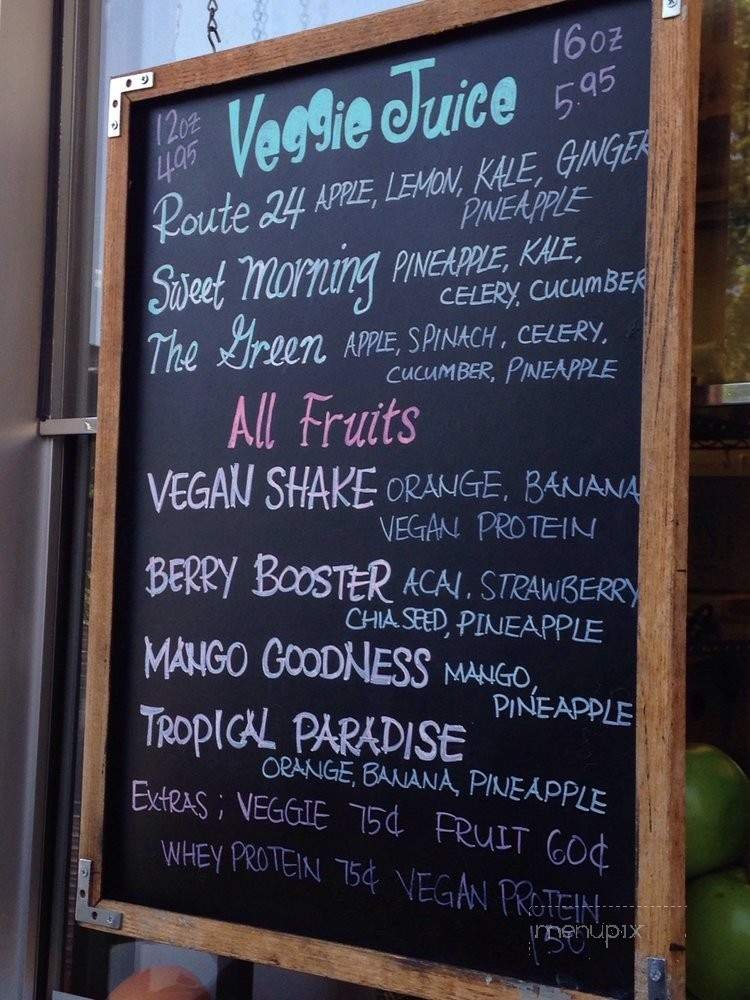 12oz 4.95
Veggie Juice
16oz 5.95
Route 24 APPLE, LEMON, KALE, GINGER
PINEAPPLE
Sweet Morning PINEAPPLE, KALE,
CELERY, CUCUMBER
The Green APPLE, SPINACH, CELERY,
CUCUMBER, PINEAPPLE
All Fruits
VEGAN SHAKE ORANGE, BANANA
VEGAN PROTEIN
BERRY BOOSTER ACAI, STRAWBERRY
CHIA SEED, PINEAPPLE
MANGO GOODNESS MANGO,
PINEAPPLE
TROPICAL PARADISE
ORANGE, BANANA, PINEAPPLE
EXTRAS; VEGGIE 75¢ FRUIT 60¢
WHEY PROTEIN 75¢ VEGAN PROTEIN
menupix